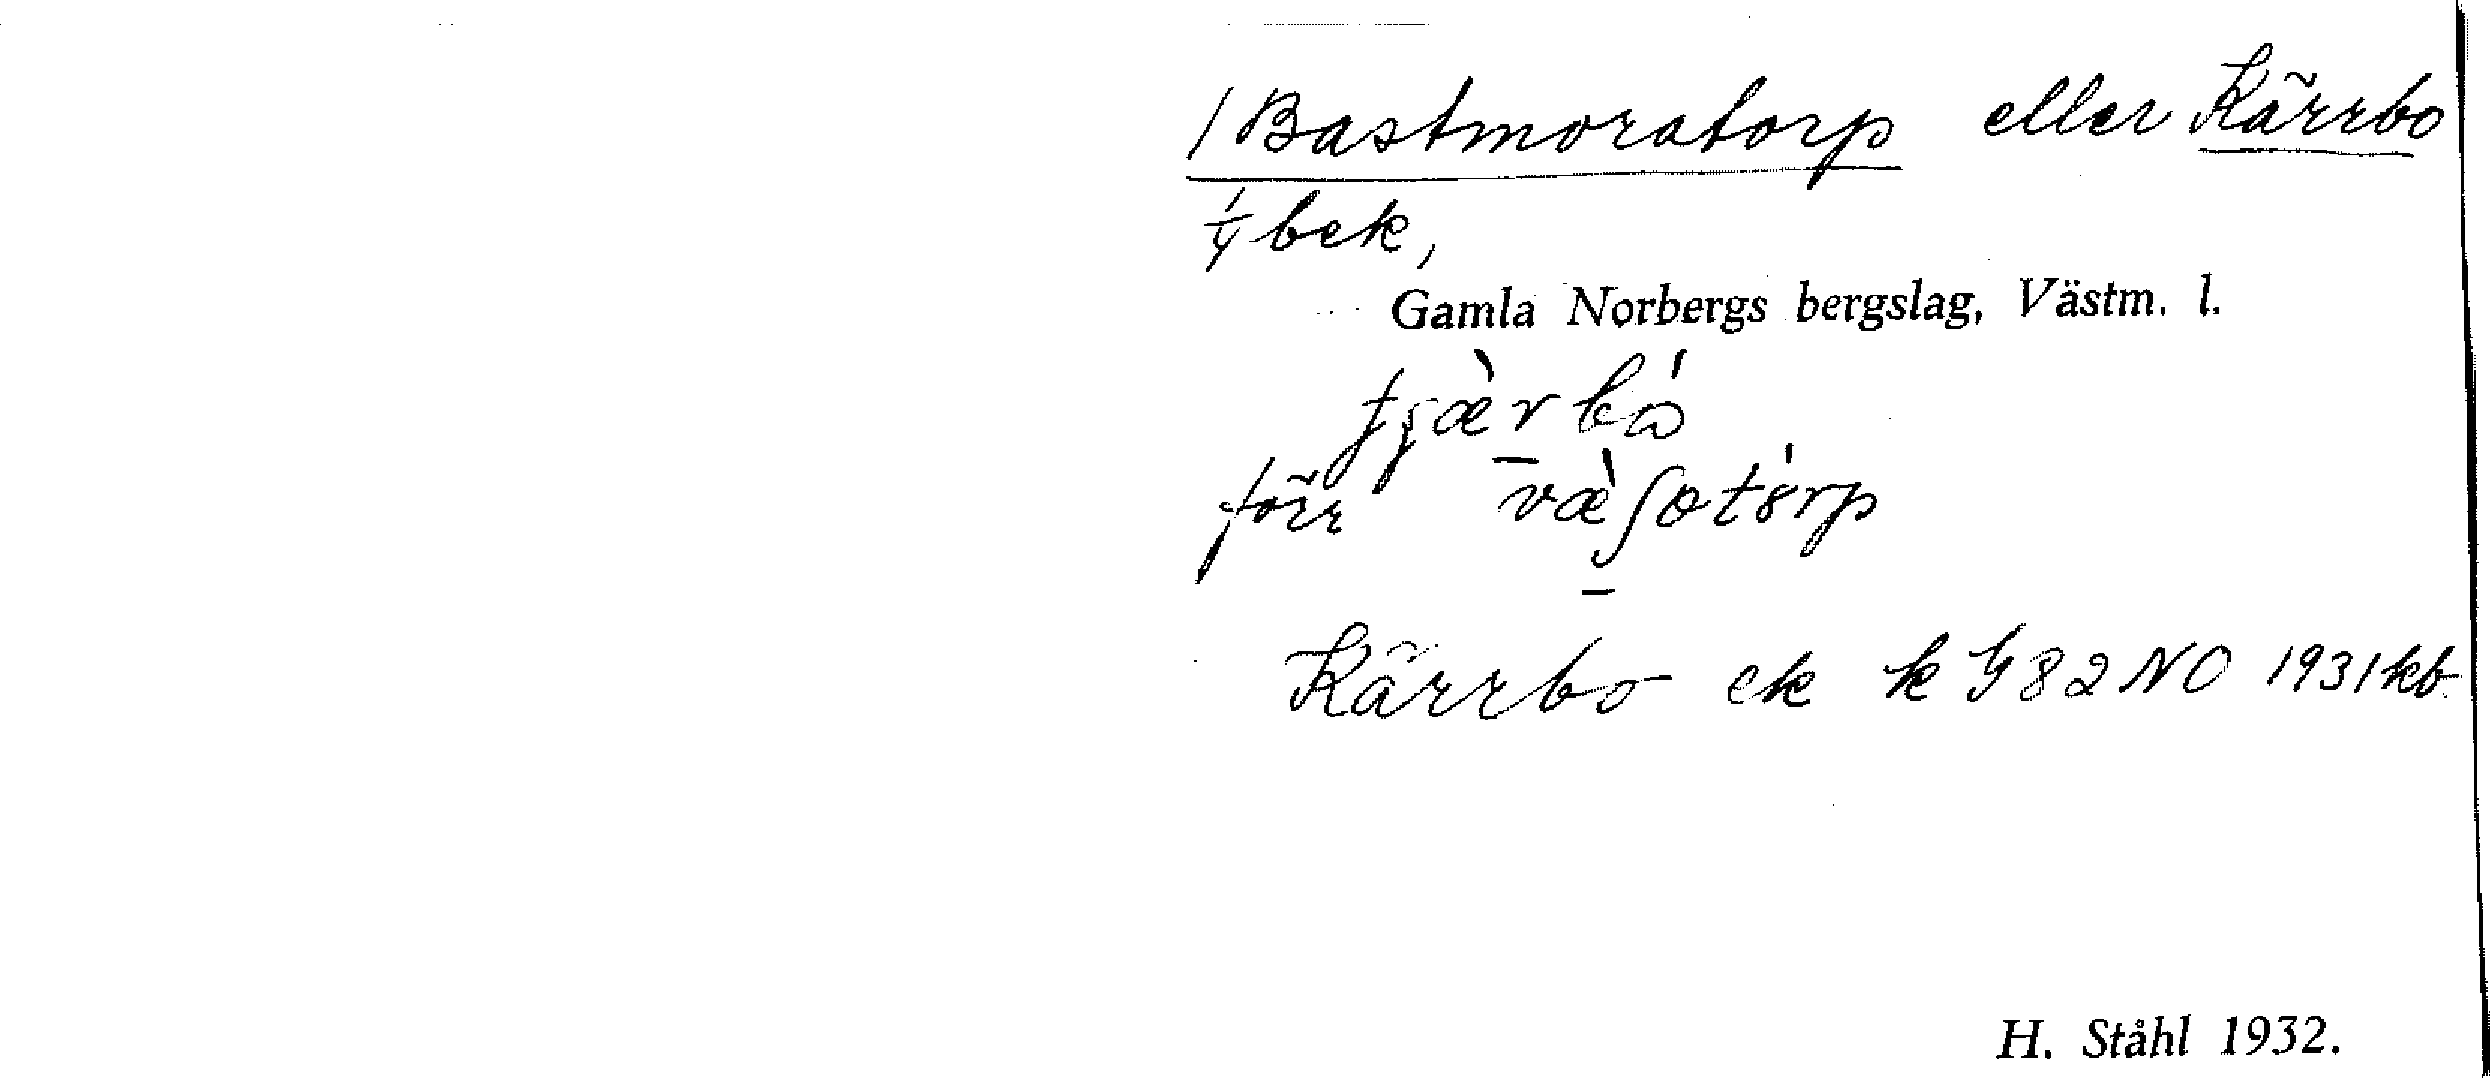 / Bastmoratorp eller Kärrbo
1/4 bek,
Gamla Norbergs bergslag, Västm. l.
förr
Kärrbo ek k G 82 NO 1931 kb.
H. Ståhl 1932.